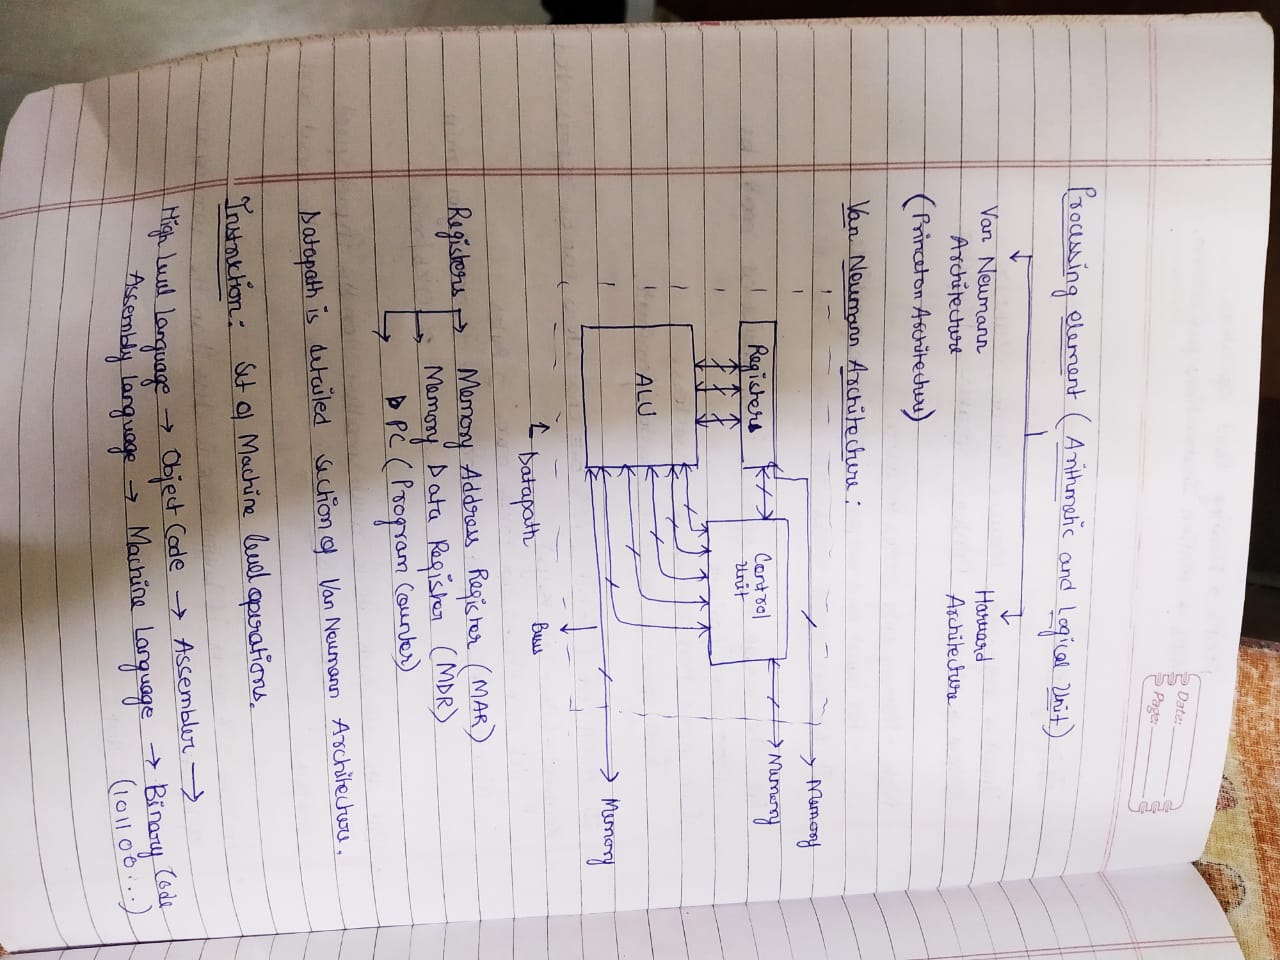 Date:
Page:
Processing element (Arithmatic and Logical Unit)
Van Neumann Architecture
(Princeton Architecture)
Harward Architecture
Van Neumann Architecture:
Registers
Control Unit
ALU
Memory
Memory
Memory
Datapath
Bus
Registers → Memory Address Register (MAR)
→ Memory Data Register (MDR)
→ PC (Program Counter)
Datapath is detailed section of Van Neumann Architecture.
Instruktion: Set of Machine level operations.
High level language → Object Code → Assembler →
Assembly language → Machine Language → Binary Code
(101100...)